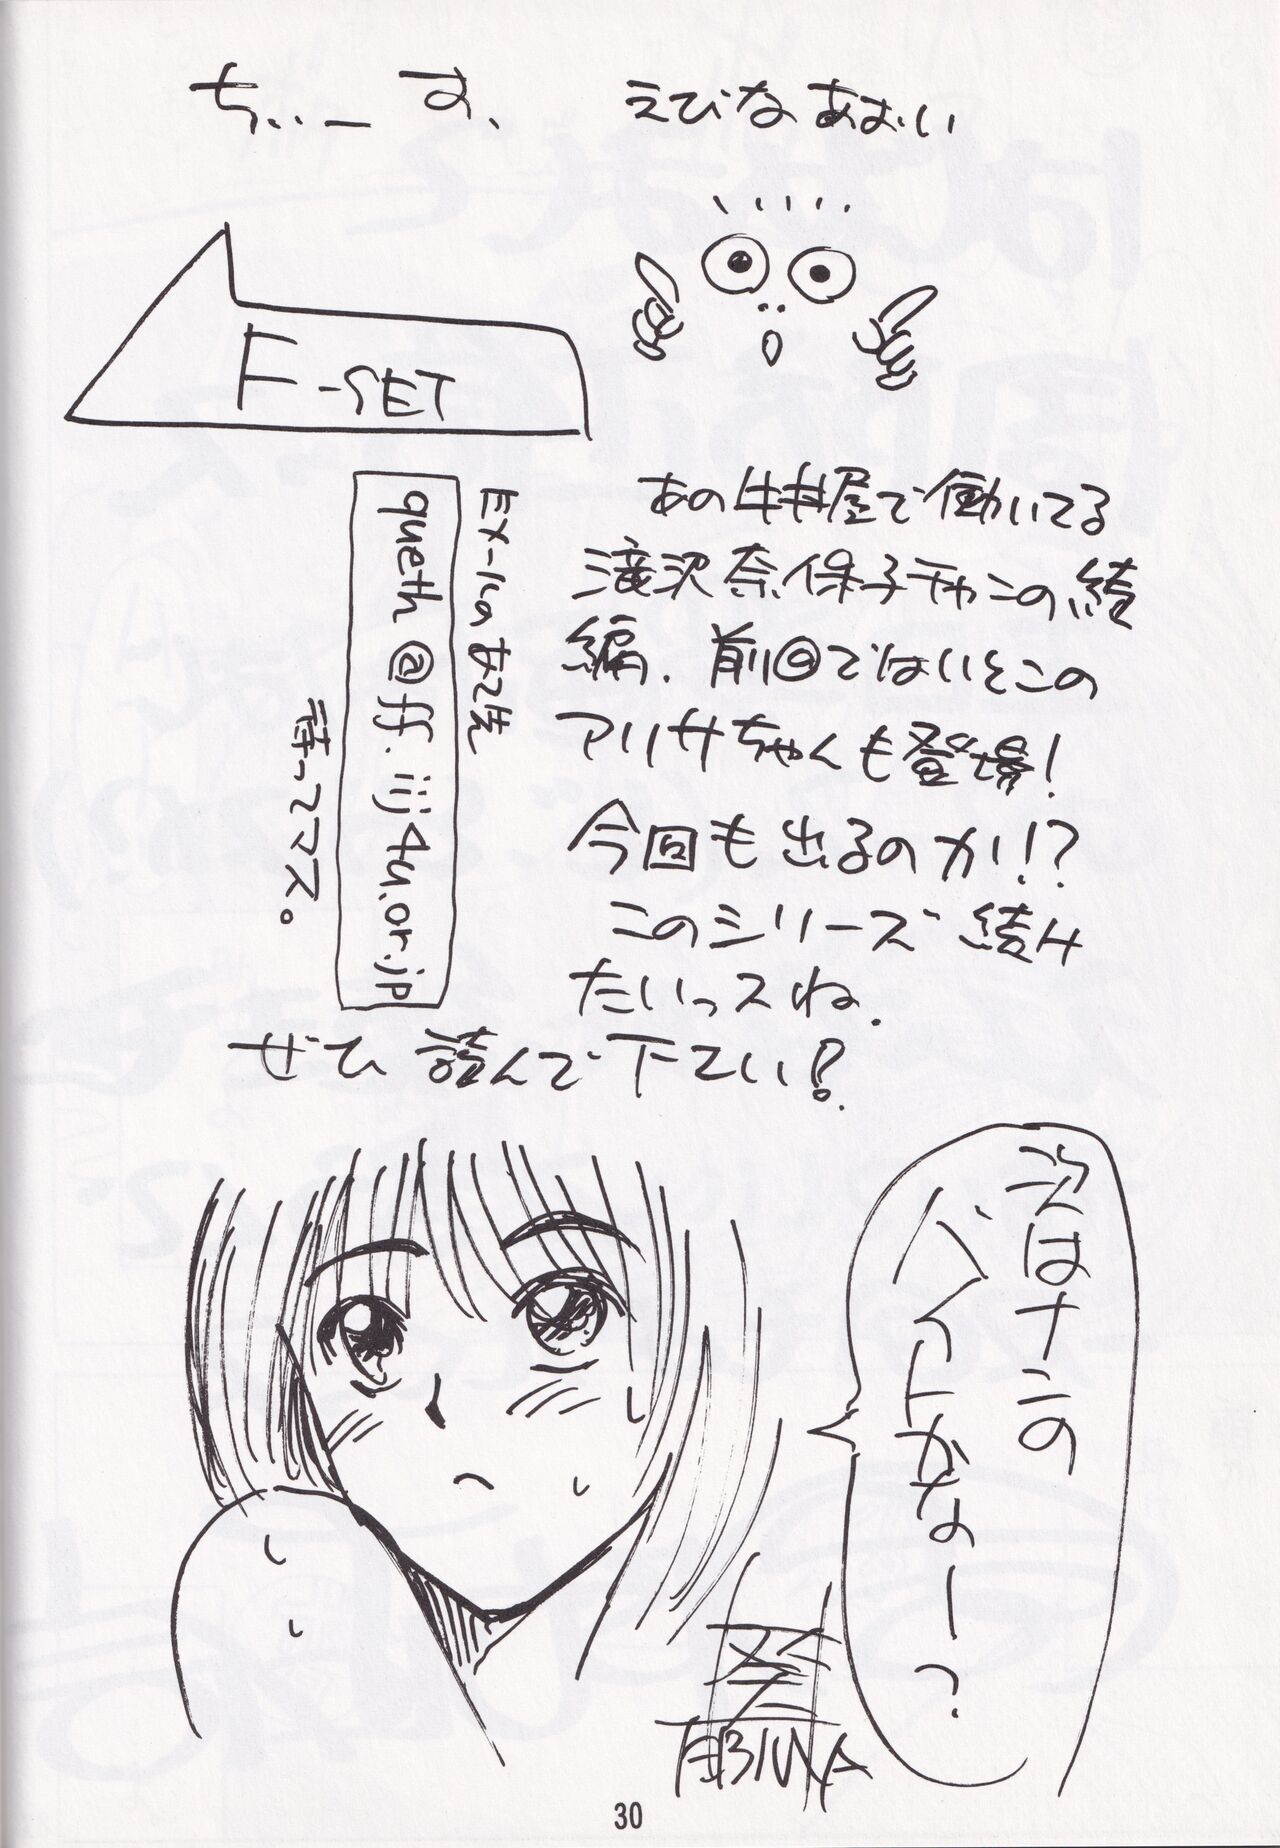 ちぃーす、 えびなあおい
F-SET
あの牛丼屋で働いてる
滝沢奈保子チャンの続
編. 前回ではいとこの
アリサちゃんも登場!
今回も出るのカ!!?
このシリーズ続け
たいっスね.
ぜひ読んで下さい!
Eメールのあて先
queth@ff.iij4u.or.jp
待ってマス。
次はナンの
バイトかなーっ?
葵
EBINA
30